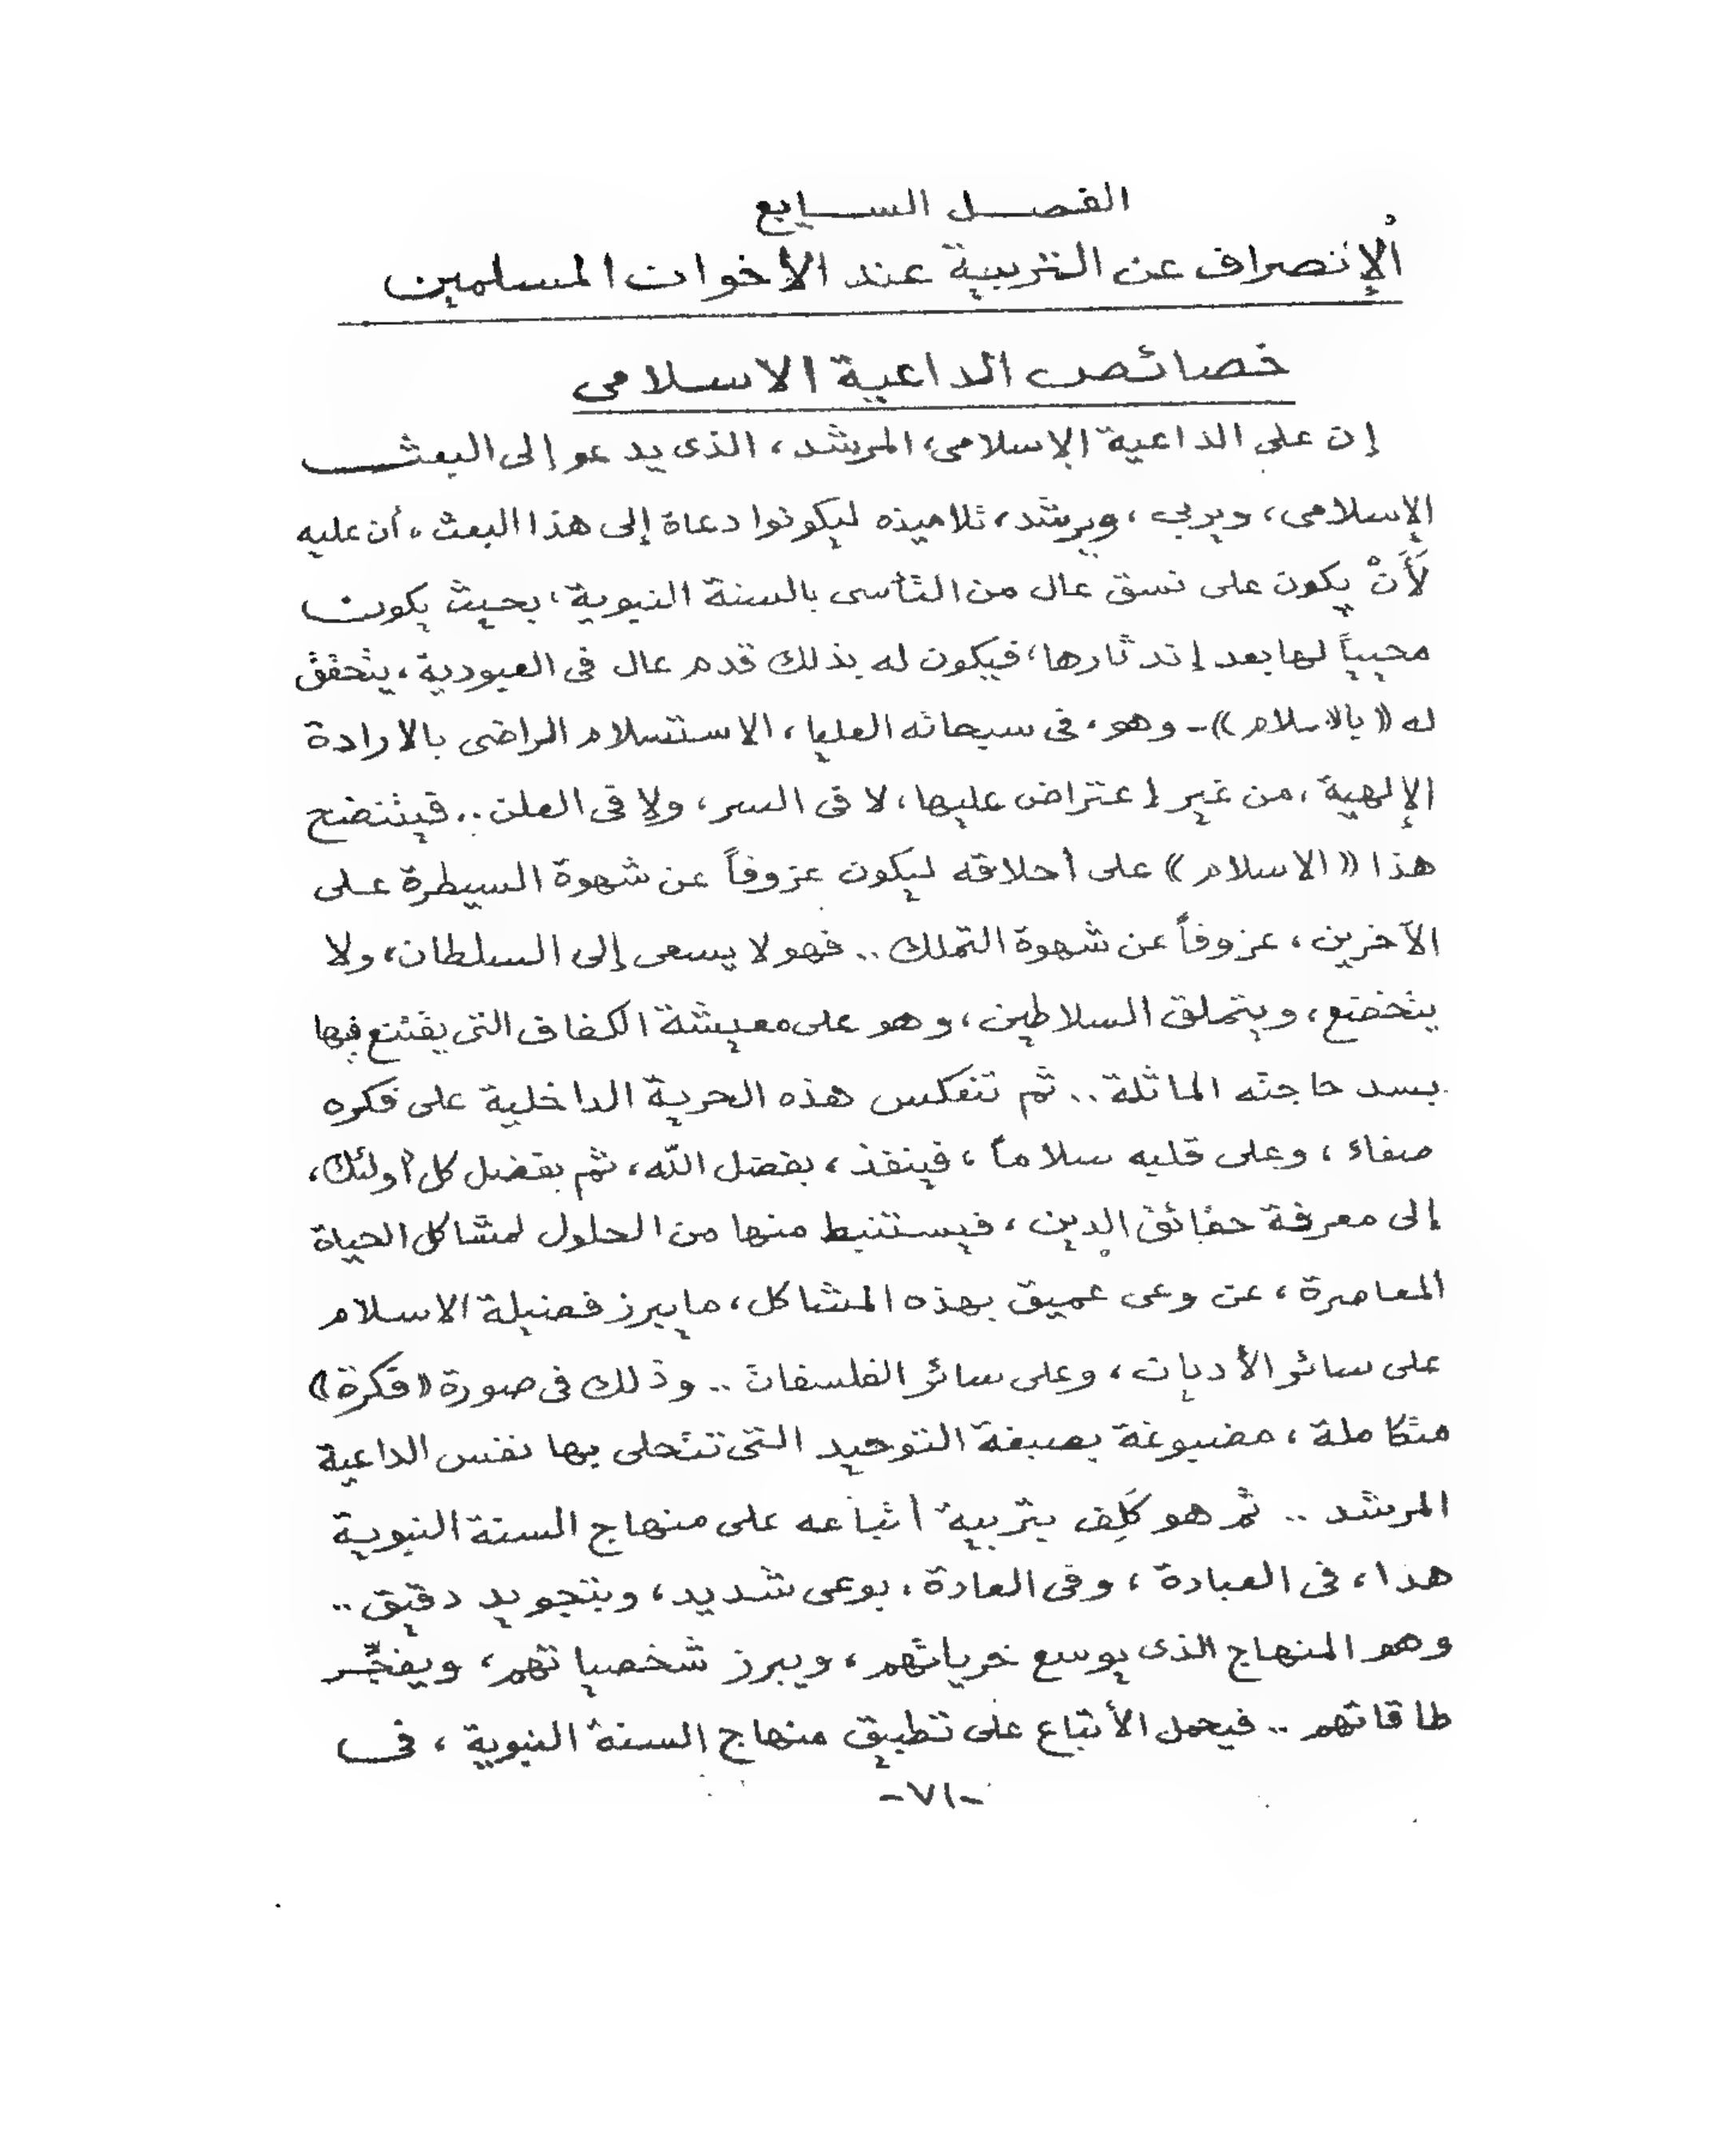 الفصل السابع
الإنصراف عن التربية عند الأخوان المسلمين
خصائص الداعية الاسلامى
إن على الداعية الإسلامى، المرشد، الذى يدعو إلى البعث
الإسلامى، ويربى، ويرشد، تلاميذه ليكونوا دعاة إلى هذا البعث، أن عليه
لَأَنْ يكون على نسق عال من التأسى بالسنة النبوية، بحيث يكون
محيياً لها بعد إندثارها، فيكون له بذلك قدم عال فى العبودية، يتحقق
له «بالاسلام» - وهو، فى سبحاته العليا، الاستسلام الراضى بالارادة
الإلهية، من غير إعتراض عليها، لا فى السر، ولا فى العلن.. فينتضح
هذا «الاسلام» على أخلاقه ليكون عزوفاً عن شهوة السيطرة على
الآخرين، عزوفاً عن شهوة التملك.. فهو لا يسعى إلى السلطان، ولا
يتخضع، ويتملق السلاطين، وهو على معيشة الكفاف التى يقتنع فيها
بسد حاجته الماثلة.. ثم تنعكس هذه الحرية الداخلية على فكره
صفاء، وعلى قلبه سلاماً، فينفذ، بفضل الله، ثم بفضل كل أولئك،
إلى معرفة حقائق الدين، فيستنبط منها من الحلول لمشاكل الحياة
المعاصرة، عن وعى عميق بهذه المشاكل، ما يبرز فضيلة الاسلام
على سائر الأديان، وعلى سائر الفلسفات.. وذلك فى صورة «فكرة»
متكاملة، مصبوغة بصبغة التوحيد التى تتحلى بها نفس الداعية
المرشد.. ثم هو كَلِف بتربية أتباعه على منهاج السنة النبوية
هذا، فى العبادة، وفى العادة، بوعى شديد، وبتجويد دقيق..
وهو المنهاج الذى يوسع حرياتهم، ويبرز شخصياتهم، ويفجِّر
طاقاتهم.. فيحمل الأتباع على تطبيق منهاج السنة النبوية، فى
-٧١-